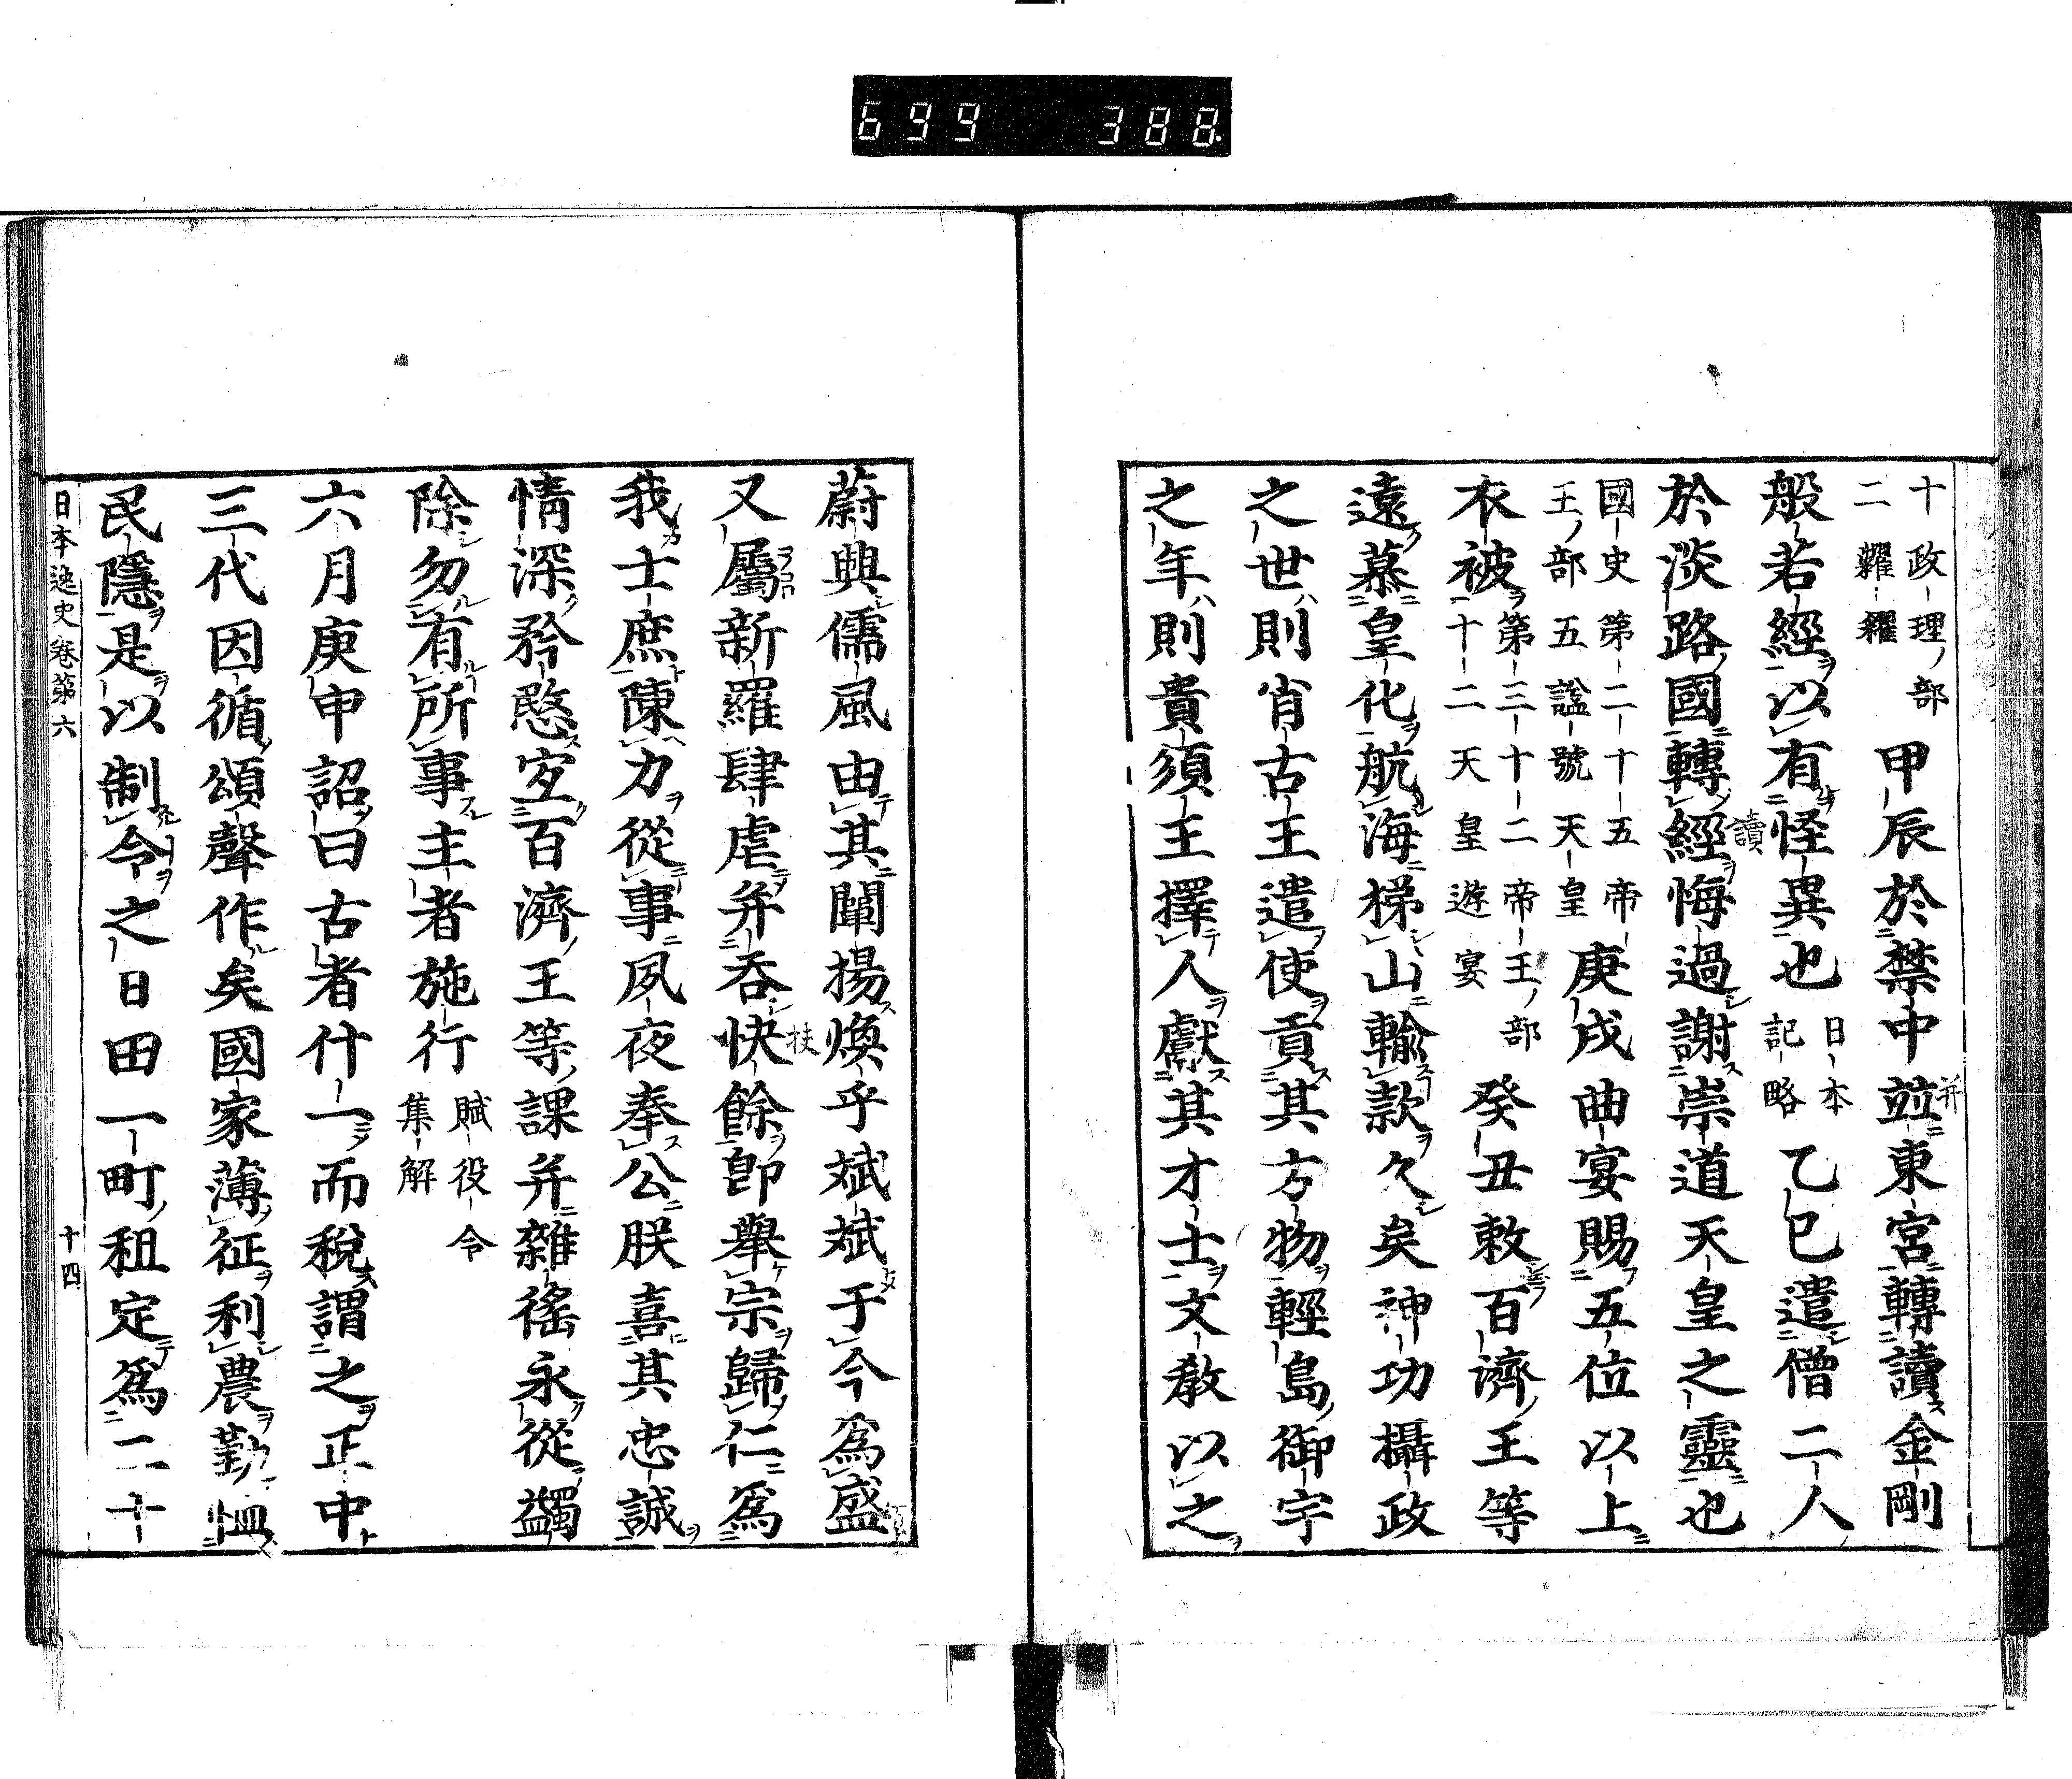 699 388
十政理部二糶糴甲辰於禁中並東宮轉讀金剛
般若經以有怪異也日本記略乙巳遣僧二人
於淡路國轉經悔過謝崇道天皇之靈也
國史第二十五帝王部五諡號天皇庚戌曲宴賜五位以上
衣被第三十二帝王部十二天皇遊宴癸丑敕百濟王等
遠慕皇化航海梯山輸款久矣神功攝政
之世則肖古王遣使貢其方物輕島御宇
之年則貴須王擇人獻其才士文教以之
蔚興儒風由其闡揚煥乎斌斌于今爲盛
又屬新羅肆虐并吞快餘即舉宗歸仁爲
我士庶陳力從事夙夜奉公朕喜其忠誠
情深矜愍宜百濟王等課并雜徭永從蠲
除勿有所事主者施行賦役令集解
六月庚申詔曰古者什一而稅謂之正中
三代因循頌聲作矣國家薄征利農勤恤
民隱是以制令之日田一町租定爲二十
日本逸史卷第六 十四